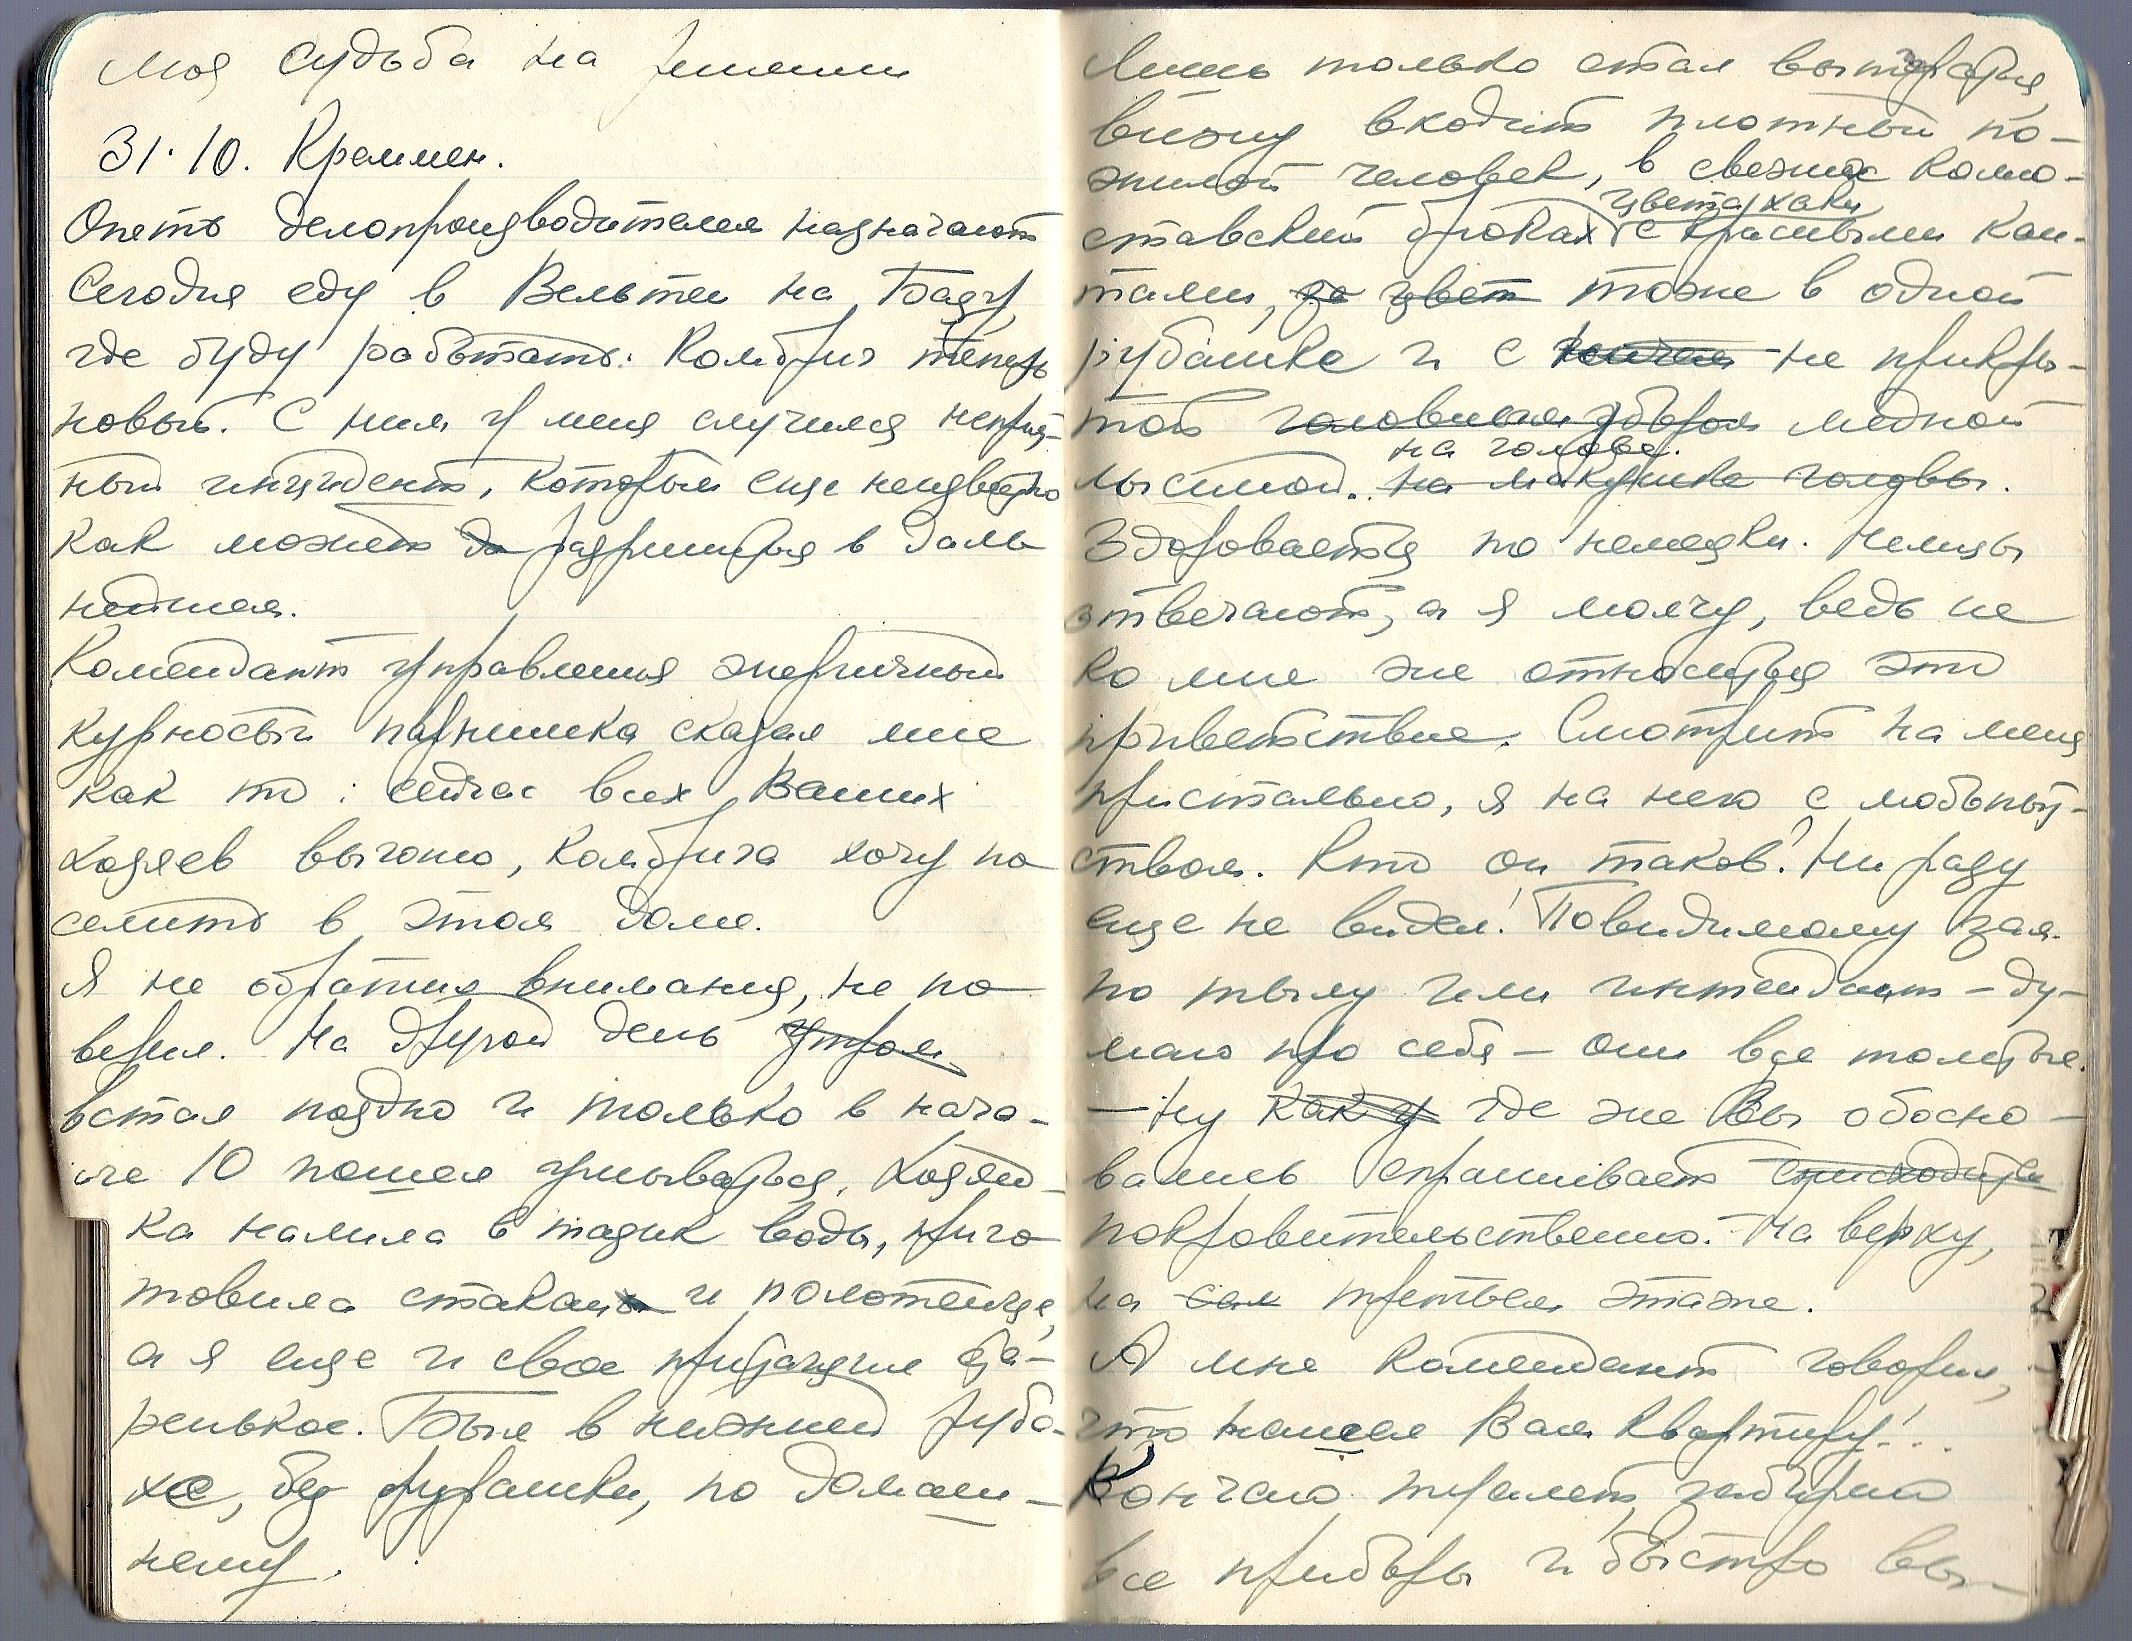 Моя судьба на решении
31·10. Креммен.
Опять делопроизводителем назначают
Сегодня еду в Вельтен на Базу,
где буду работать. Комбриг теперь
новый. С ним у меня случился неприят-
ный инцидент, который еще неизвестно
как может да разрешиться в даль
нейшем.
Комендант управления энергичный
курносый парнишка сказал мне
как то: сейчас всех Ваших
хозяев выгоню, комбрига хочу по
селить в этом доме.
Я не обратил внимания, не по
верил. На другой день утром
встал поздно и только в нача-
ле 10 пошел умываться. Хозяй-
ка налила в тазик воды, приго
товила стакан и полотенце,
а я еще и свое прибалтийское ба-
ренькое. Был в нижней руба-
хе, без фуражки, по домаш-
нему.
Лишь только стал вытираться,
вижу входит плотный по-
жилой человек, в свежих комсо-
ставских брюках с красивыми кан-
цвета хаки
тами, за цвет тоже в одной
рубашке и с не прикры-
той головным убором медной
лысиной. на макушке головы.
на голове.
Здоровается по немецки. Немцы
отвечают, а я молчу, ведь не
ко мне же относится это
приветствие. Смотрит на меня
пристально, я на него с любопыт-
ством. Кто он таков! Ни разу
еще не видел! Повидимому зам.
по тылу или интендант – ду-
маю про себя – они все толстые.
– Ну как у где же Вы обосно-
вались спрашивает снисходительно
покровительственно. – На верху,
на сам третьем этаже.
А мне комендант говорил,
что нашел Вам квартиру!..
Кончаю туалет, забираю
все приборы и быстро вы-